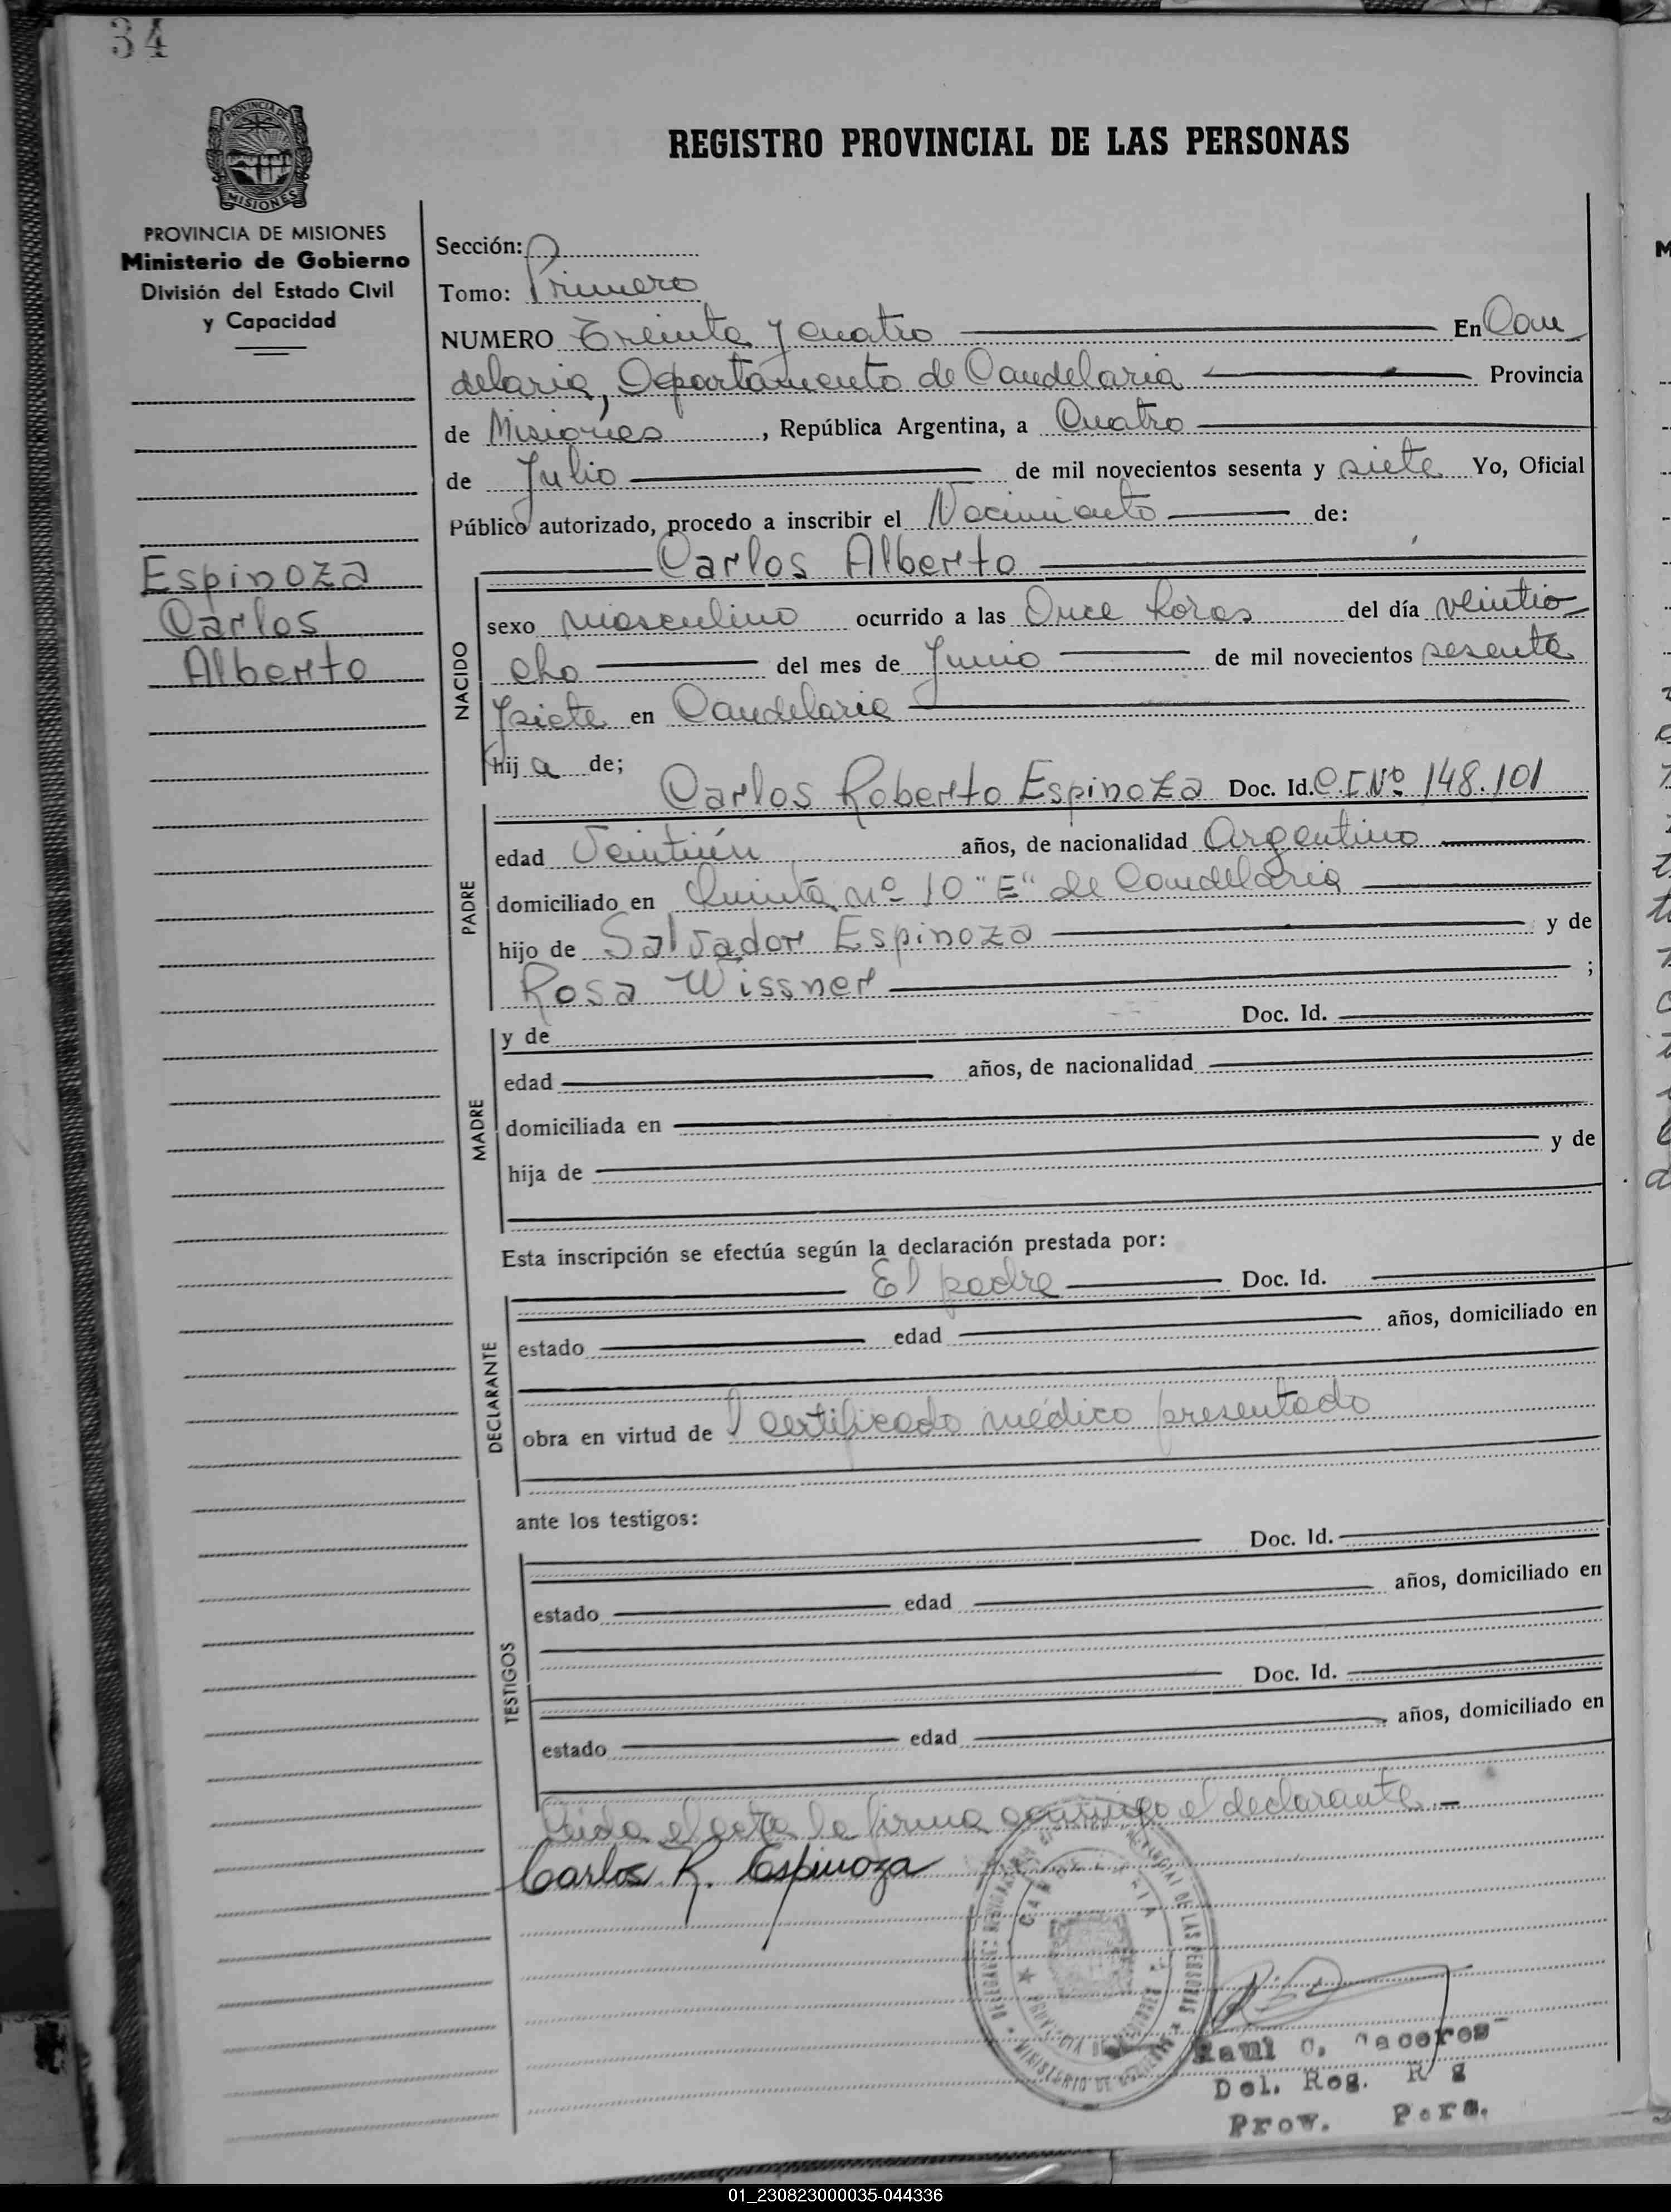 34
PROVINCIA DE
MISIONES
REGISTRO PROVINCIAL DE LAS PERSONAS
PROVINCIA DE MISIONES
Ministerio de Gobierno
División del Estado Civil
y Capacidad
Espinoza
Carlos
Alberto
Sección:
Tomo: Primero
NUMERO Treinta y cuatro En Can
delaria, Departamento de Candelaria Provincia
de Misiones, República Argentina, a Cuatro
de Julio de mil novecientos sesenta y siete Yo, Oficial
Público autorizado, procedo a inscribir el Nacimiento de:
Carlos Alberto
NACIDO
sexo masculino ocurrido a las Once horas del día veintio
cho del mes de Junio de mil novecientos sesenta
y siete en Candelaria
hij a de;
PADRE
Carlos Roberto Espinoza Doc. Id. C.I.Nº 148.101
edad Veintiún años, de nacionalidad Argentino
domiciliado en Quinta nº 10 "E" de Candelaria
hijo de Salvador Espinoza y de
Rosa Wissner ;
MADRE
y de Doc. Id.
edad años, de nacionalidad
domiciliada en
hija de y de
Esta inscripción se efectúa según la declaración prestada por:
DECLARANTE
El padre Doc. Id.
estado edad años, domiciliado en
obra en virtud de certificado médico presentado
ante los testigos:
TESTIGOS
Doc. Id.
estado edad años, domiciliado en
Doc. Id.
estado edad años, domiciliado en
Leída el acta la firma conmigo el declarante.
Carlos R. Espinoza
CANDELARIA
MINISTERIO DE GOBIERNO
Raul C. Caceres
Del. Reg.
Prov. Pers.
01_230823000035-044336